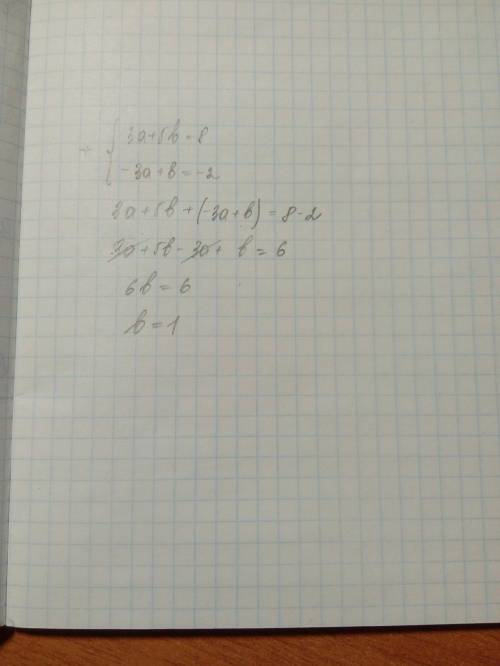 + { 3a+5b=8
-3a+b=-2
3a+5b+(-3a+b)=8-2
3a+5b-3a+b=6
6b=6
b=1